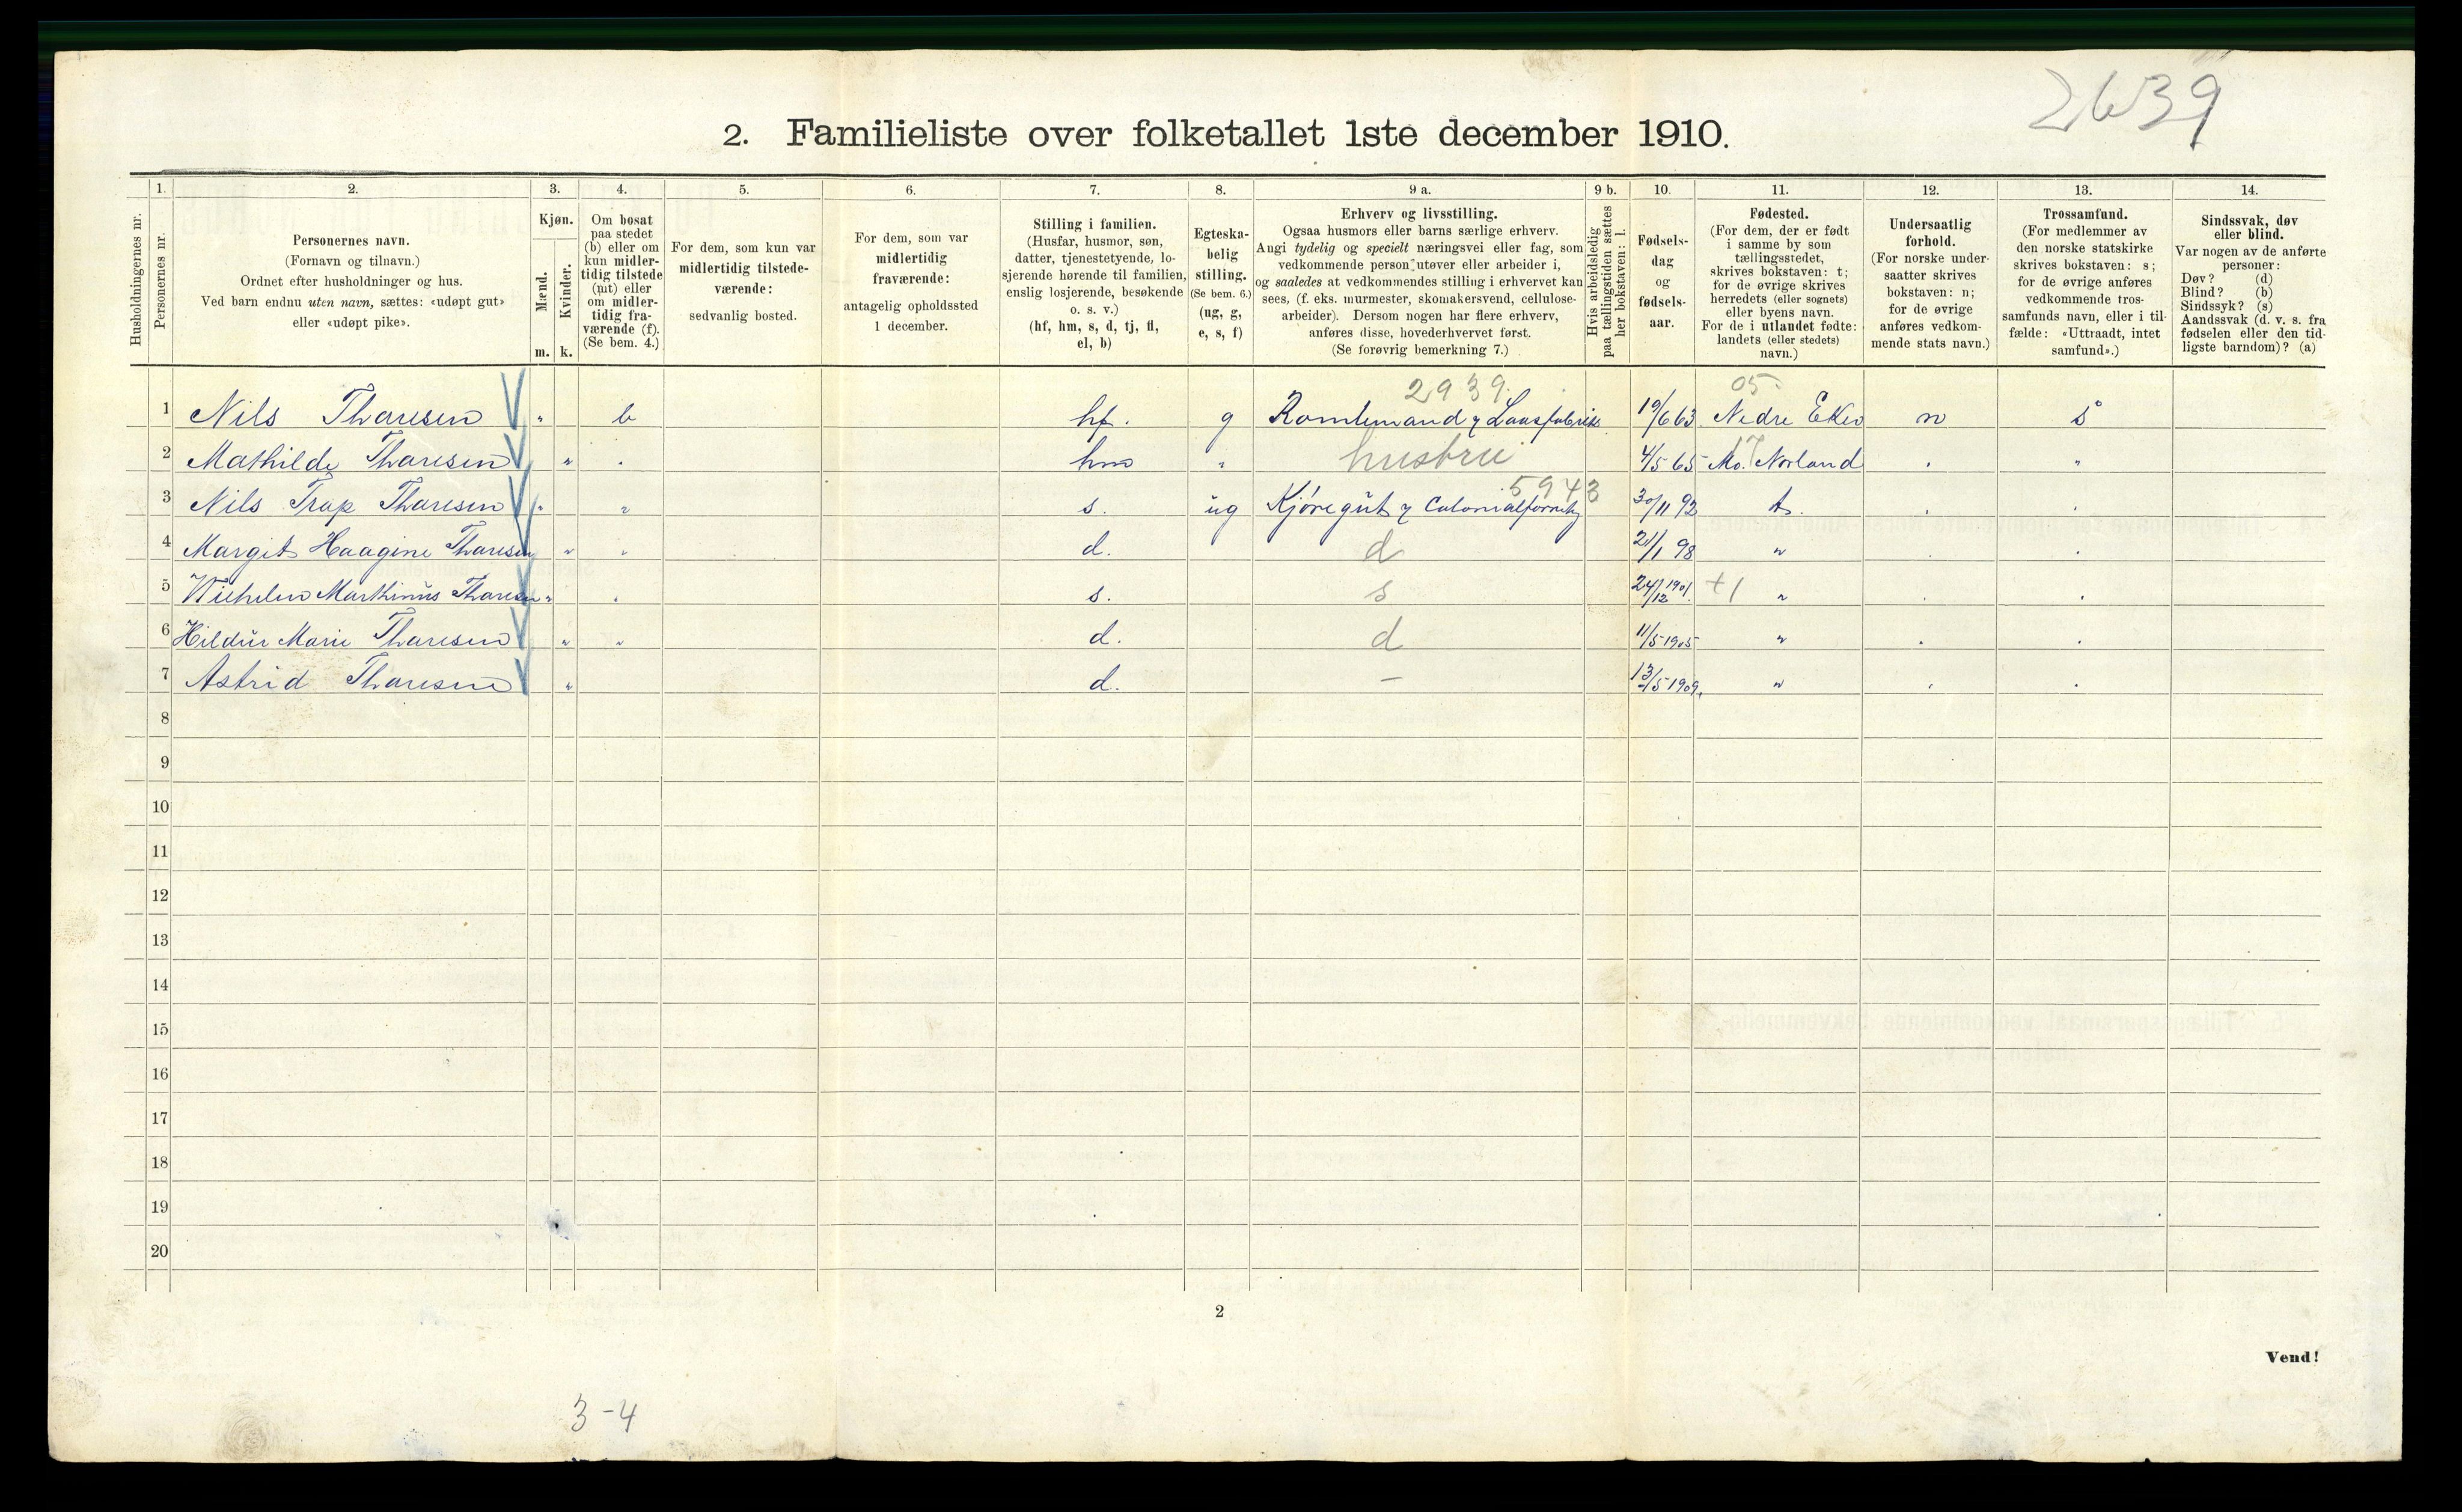 2639
2. Familieliste over folketallet 1ste december 1910.
1. 2. 3. 4. 5. 6. 7. 8. 9 a. 9 b. 10. 11. 12. 13. 14.
Husholdningernes nr.
Personernes nr.
Personernes navn.
(Fornavn og tilnavn.)
Ordnet efter husholdninger og hus.
Ved barn endnu uten navn, sættes: «udøpt gut»
eller «udøpt pike».
Kjøn.
Mænd.
Kvinder.
m. k.
Om bosat
paa stedet
(b) eller om
kun midler-
tidig tilstede
(mt) eller
om midler-
tidig fra-
værende (f).
(Se bem. 4.)
For dem, som kun var
midlertidig tilstede-
værende:
sedvanlig bosted.
For dem, som var
midlertidig
fraværende:
antagelig opholdssted
1 december.
Stilling i familien.
(Husfar, husmor, søn,
datter, tjenestetyende, lo-
sjerende hørende til familien,
enslig losjerende, besøkende
o. s. v.)
(hf, hm, s, d, tj, fl,
el, b)
Egteska-
belig
stilling.
(Se bem. 6.)
(ug, g,
e, s, f)
Erhverv og livsstilling.
Ogsaa husmors eller barns særlige erhverv.
Angi tydelig og specielt næringsvei eller fag, som
vedkommende person utøver eller arbeider i,
og saaledes at vedkommendes stilling i erhvervet kan
sees, (f. eks. murmester, skomakersvend, cellulose-
arbeider). Dersom nogen har flere erhverv,
anføres disse, hovederhvervet først.
(Se forøvrig bemerkning 7.)
Hvis arbeidsledig
paa tællingstiden sættes
her bokstaven: l.
Fødsels-
dag
og
fødsels-
aar.
Fødested.
(For dem, der er født
i samme by som
tællingsstedet,
skrives bokstaven: t;
for de øvrige skrives
herredets (eller sognets)
eller byens navn.
For de i utlandet fødte:
landets (eller stedets)
navn.)
Undersaatlig
forhold.
(For norske under-
saatter skrives
bokstaven: n;
for de øvrige
anføres vedkom-
mende stats navn.)
Trossamfund.
(For medlemmer av
den norske statskirke
skrives bokstaven: s;
for de øvrige anføres
vedkommende tros-
samfunds navn, eller i til-
fælde: «Uttraadt, intet
samfund».)
Sindssvak, døv
eller blind.
Var nogen av de anførte
personer:
Døv? (d)
Blind? (b)
Sindssyk? (s)
Aandssvak (d. v. s. fra
fødselen eller den tid-
ligste barndom)? (a)
2939. 05
1 Nils Tharesen " b hf. g 19/6 63 Nedre Eker n s
2 Mathilde Tharesen " " hm " hustru 4/5 65 Mo. Norland " "
5943
3 Nils Trap Tharesen " " s. ug Kjøregut 30/11 92 t. " "
4 Margit Haagine Tharesen " " d. d 21/1 98 " " "
5 Wilhelm Marthinus Tharesen " " s. s 24/12 1901. +1 " " "
6 Hildur Marie Tharesen " " d. d 11/5 1905 " " "
7 Astrid Tharesen " d. – 13/5 1909. " " "
8
9
10
11
12
13
14
15
16
17
18
19
20
2
Vend!
3-4